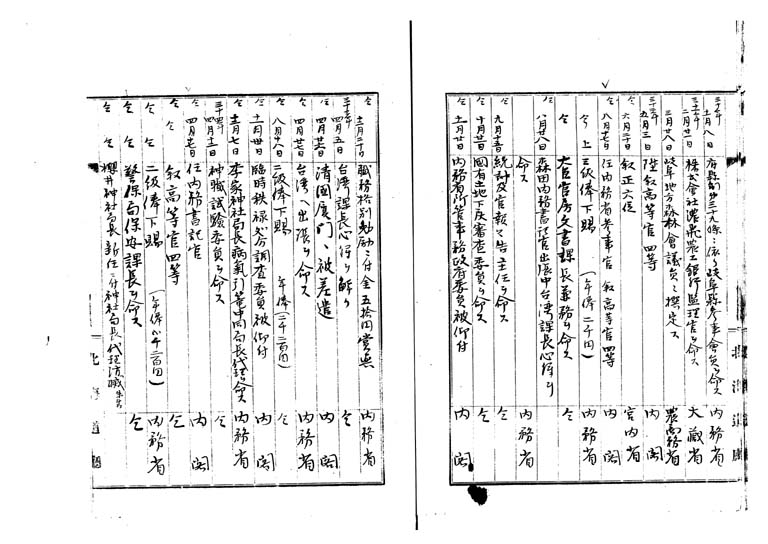 十一月八日 府県制第三十九條ニ依リ岐阜縣参事會員ヲ命ス 内務省
二月廿一日 株式會社濃飛農工銀行監理官ヲ命ス 大藏省
三月廿八日 岐阜地方森林會議員ニ撰定ス 農商務省
五月三日 陞叙高等官四等 内閣
六月二十日 叙正六位 宮内省
八月七日 任内務省参事官 叙高等官四等 内閣
仝 上 三級俸下賜 (年俸二千円) 内務省
仝 大臣官房文書課長兼務ヲ命ス 仝
八月廿八日 森田内務書記官出張中台湾課長心得ヲ
命ス 内務省
九月十五日 統計及官報報告主任ヲ命ス 仝
仝 十月廿日 国有土地下戻審査委員ヲ命ス 仝
仝 十一月廿日 内務省所管事務政府委員被仰付 内閣
仝 十二月二十日 職務格別勉励ニ付金五拾円賞与 内務省
四月五日 台湾課長心得ヲ解ク 仝
仝 四月四日 清国厦門ヘ被差遣 内閣
仝 四月廿日 台湾ヘ出張ヲ命ス 内務省
八月十八日 二級俸下賜 年俸(二千二百円) 仝
仝 十一月四日 臨時秩禄処分調査委員被仰付 内閣
仝 十二月七日 李家神社局長病氣引篭中同局長代理ヲ命ス 内務省
三十四年 四月十二日 神職試驗委員ヲ命ス 仝
仝 四月七日 任内務書記官 内閣
仝 仝 叙高等官四等 仝
仝 仝 二級俸下賜 (年俸二千二百円) 内務省
仝 仝 警保局保安課長ヲ命ス 仝
仝 仝 櫻井神社局長新任ニ付神社局長代理
北海道廳